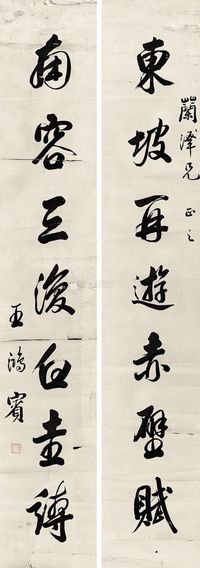 東坡再遊赤壁賦
蘭澤兄 正之
南容三復白圭詩
王鴻賓